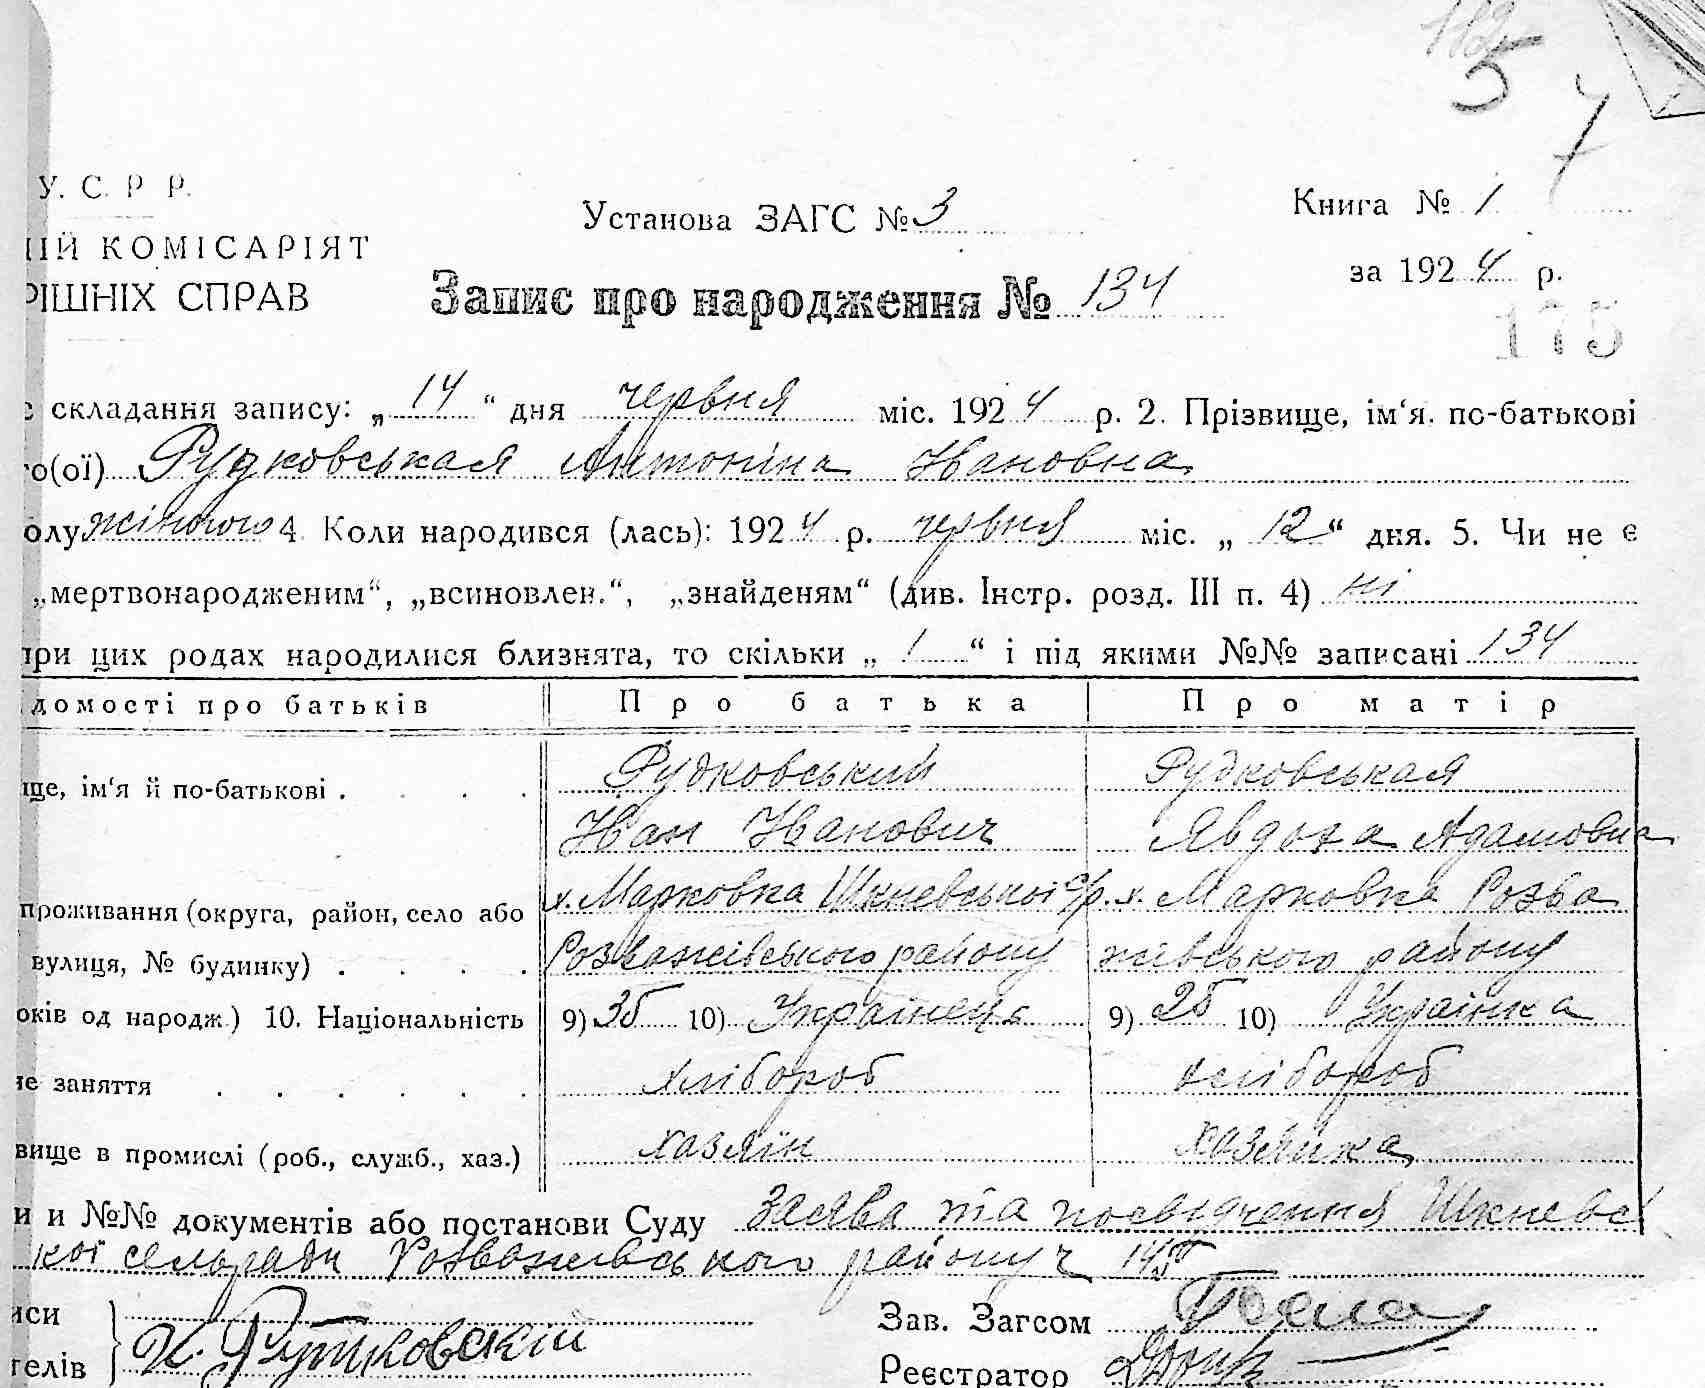 5
7
У. С. Р Р.
Установа ЗАГС № 3
Книга № 1
ІЙ КОМІСАРІЯТ
за 1924 р.
РІШНІХ СПРАВ
Запис про народження № 134
175
складання запису: „ 14 “ дня червня міс. 1924 р. 2. Прізвище, ім‘я. по-батькові
го(ої) Рудковськая Антоніна Ивановна
олу жіночого 4. Коли народився (лась): 1924 р. червня міс. „ 12 “ дня. 5. Чи не є
„мертвонародженим“, „всиновлен.“, „знайденям“ (див. Інстр. розд. III п. 4) ні
при цих родах народилися близнята, то скільки „ 1 “ і під якими №№ записані 134
домості про батьків Про батька Про матір
Рудковський Рудковськая
ще, ім‘я й по-батькові .
Иван Иванович Явдоха Адамовна
х. Марковка Шкневської с/р. х. Марковка Розва
проживання (округа, район, село або
вулиця, № будинку) . Розважівського району жівського району
оків од народж.) 10. Національність 9) 35 10) Українець 9) 25 10) Українка
не заняття хлібороб хлібороб
вище в промислі (роб., служб., хаз.) хазяїн хазяйка
и и №№ документів або постанови Суду Заява та посвідчення Шкневсь
кої сельради Розважевського району
иси
телів И. Рутковскій
Зав. Загсом
Реєстратор